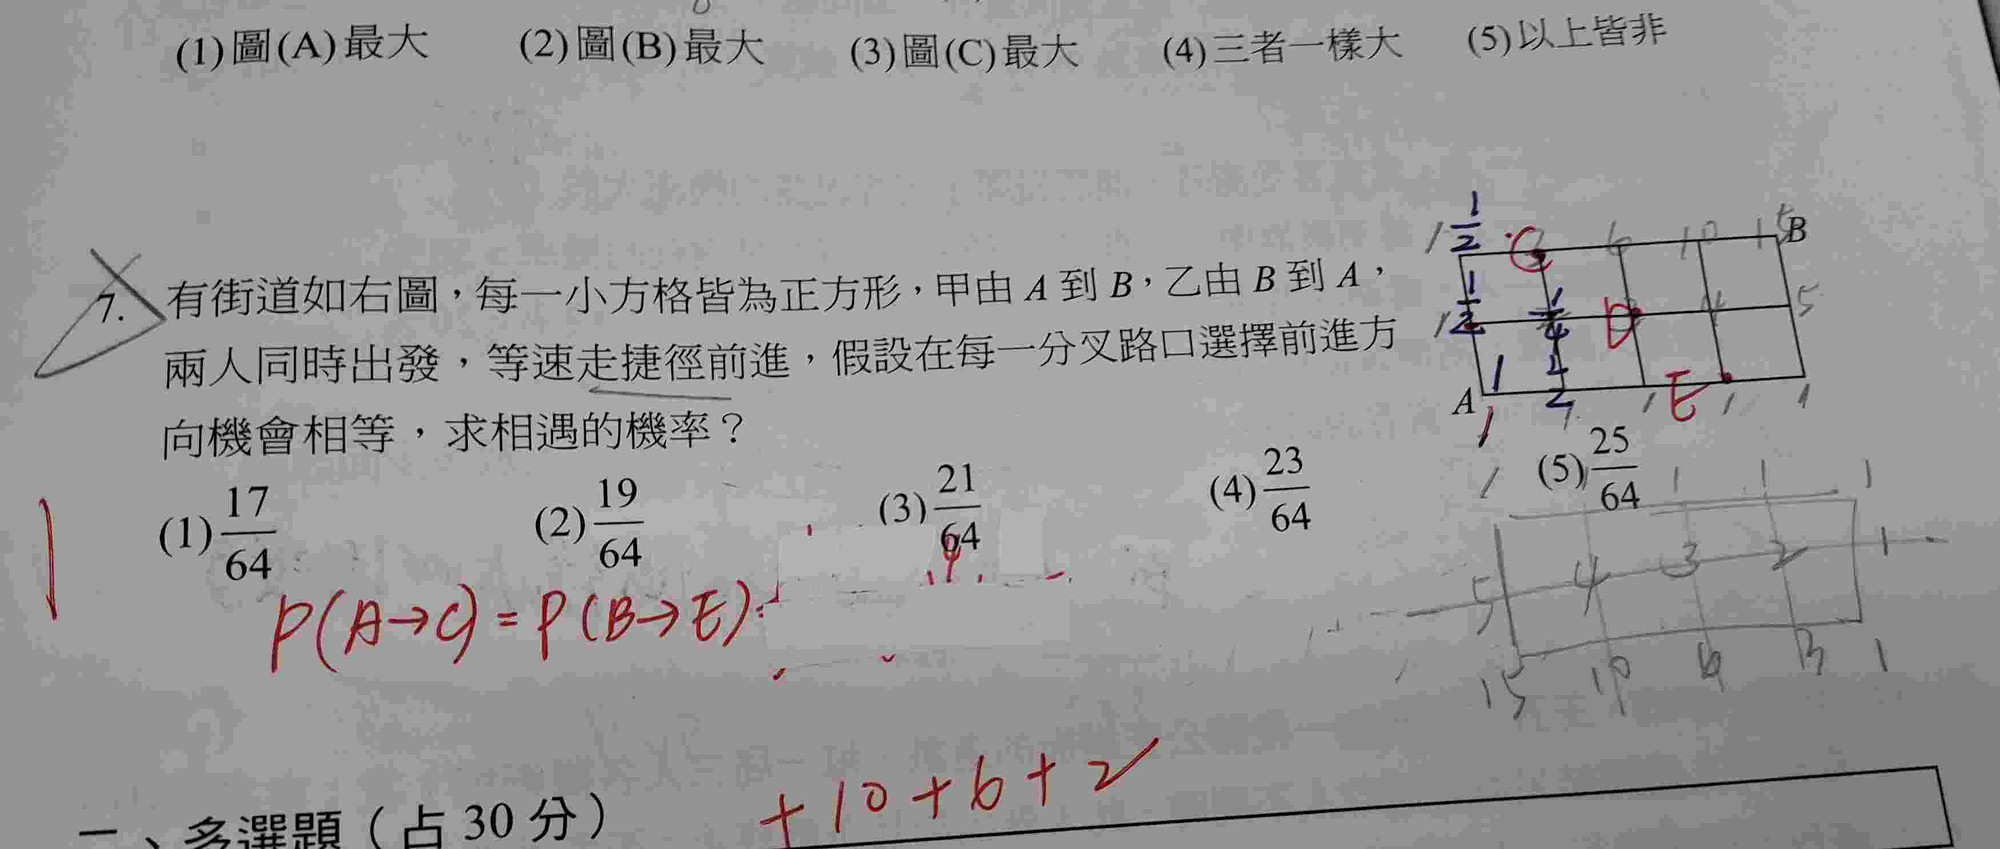 (1)圖(A)最大 (2)圖(B)最大 (3)圖(C)最大 (4)三者一樣大 (5)以上皆非
7. 有街道如右圖，每一小方格皆為正方形，甲由 A 到 B，乙由 B 到 A，
兩人同時出發，等速走捷徑前進，假設在每一分叉路口選擇前進方
向機會相等，求相遇的機率？
(1) 17/64 (2) 19/64 (3) 21/64 (4) 23/64 (5) 25/64
1/2 C 6 10 15 B
1/2 1/4 D 4 5
A 1 1/2 E
1 1 1 1
5 4 3 2 1
15 10 6 3 1
P(A→C)=P(B→E)=
+10+6+2
二、多選題（占 30 分）